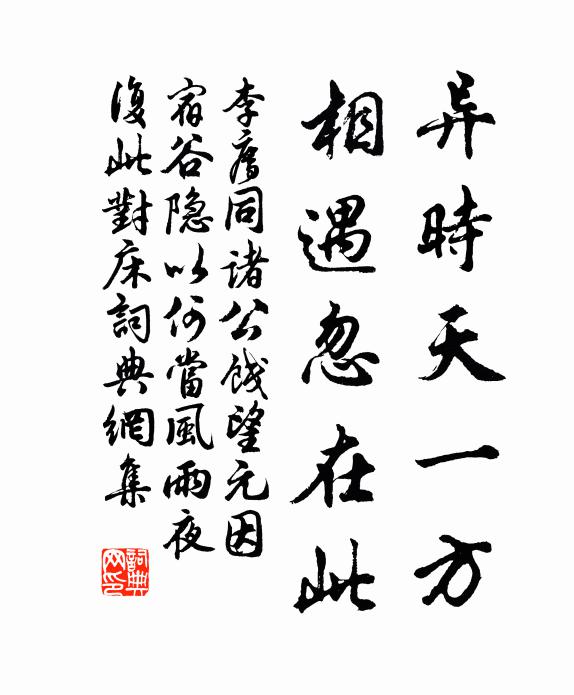 异時天一方
相遇忽在此
李廌同諸公餞望元因
宿谷隐以何當風雨夜
復此對床詞典網集
詞典
网印